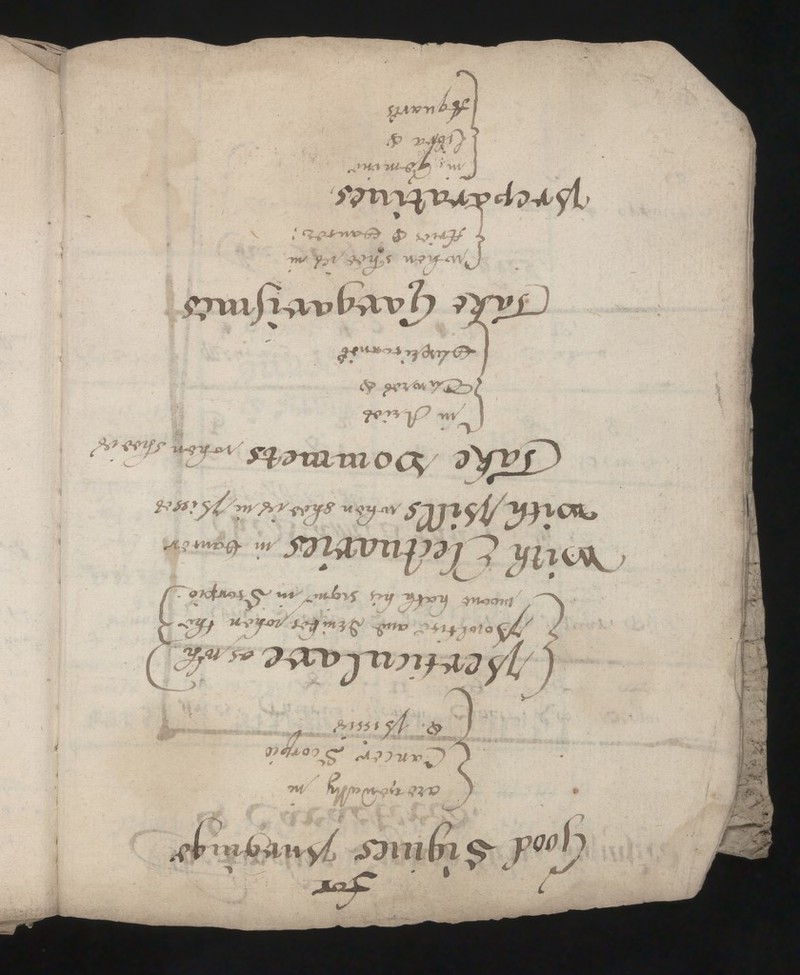 for
Good Signes Purginge
are yearally in
Cancer Scorpio
& Pissis
Perticulare as wth
Powltise and drinkes when the
moone hath his signe in Scorpio.
With Electuaries in Cancer
with Pills when shee is in Pisses
Take Vommets when shee is
in Aries
Taurus &
Take Gargarismes
when shee is in
Aries & Cancer:
Preparatiues
in Gemini
Libra &
Aquaris